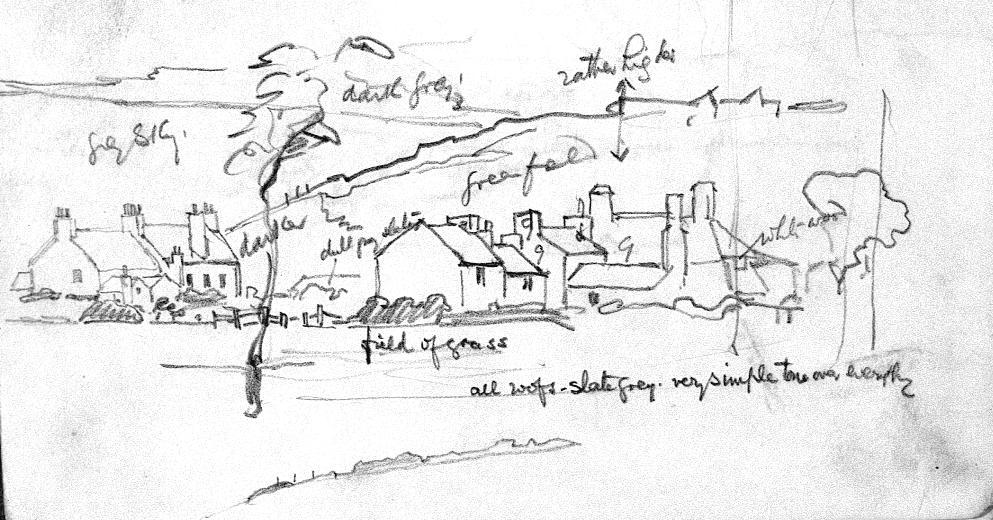 rather higher
dark grey
grey sky.
green field
darker
dull
G
G
field of grass
all roofs - slate grey. very simple tone over everything